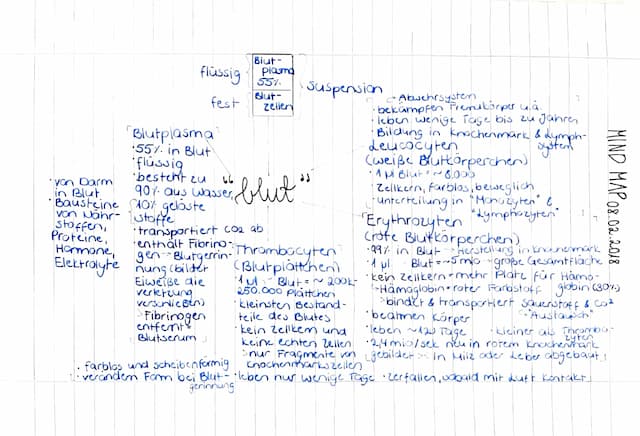 MIND MAP 08.02.2018
flüssig
Blut-
plasma
55%
fest
Blut-
zellen
Suspension
"blut"
Blutplasma
· 55% in Blut
· flüssig
· besteht zu
90% aus Wasser,
10% gelöste
Stoffe
· transportiert CO2 ab
· enthält Fibrino-
gen - Blutgerin-
nung (bildet
Eiweiße die
verletzung
verschließen)
· Fibrinogen
entfernt =
Blutserum
· von Darm
in Blut
· Bausteine
von Nähr-
stoffen,
Proteine,
Hormone,
Elektrolyte
Thrombocyten
(Blutplättchen)
· 1 µl Blut = ~ 200k-
250.000 Plättchen
· kleinsten Bestand-
teile des Blutes
· kein Zellkern und
keine echten Zellen
· nur Fragmente von
Knochenmarkszellen
· farblos und scheibenförmig
· verändern Form bei Blut-
gerinnung
· leben nur wenige Tage
· zerfallen, sobald mit Luft Kontakt
· Abwehrsystem
· bekämpfen Fremdkörper u.ä.
· leben wenige Tage bis zu Jahren
· Bildung in Knochenmark & Lymph-
system
Leucocyten
(weiße Blutkörperchen)
· 1 µl Blut = ~ 8,000
· Zellkern, farblos, beweglich
· unterteilung in "Monozyten" &
"Lymphozyten"
Erythrozyten
(rote Blutkörperchen)
· 99% in Blut
· Herstellung in Knochenmark
· 1 µl Blut = ~ 5 mio
· große Gesamtfläche
· kein Zellkern = mehr Platz für Hämo-
globin (30%)
· Hämoglobin = roter Farbstoff
bindet & transportiert sauerstoff & CO2
· beatmen Körper
"Austausch"
· leben ~120 Tage
· kleiner als Thrombo-
zyten
· 2,4 mio/sek neu in rotem Knochenmark
gebildet - in Milz oder Leber abgebaut